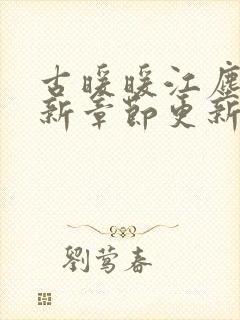 古暖暖江塵
新章節更新
劉莺春